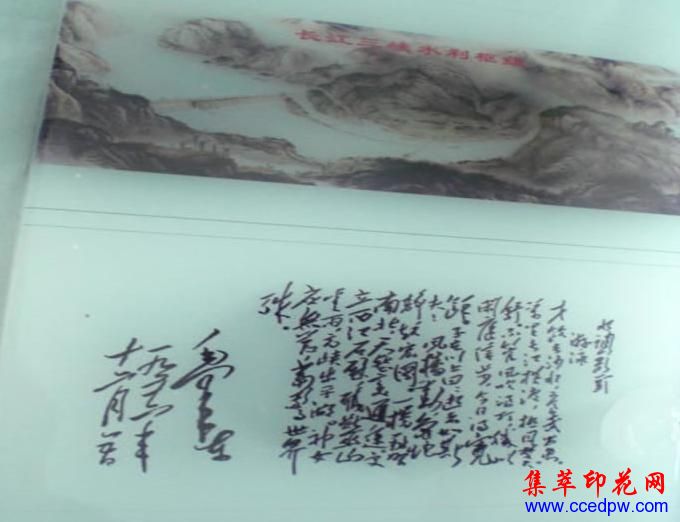 长江三峡水利枢纽
水调歌头
游泳
才饮长沙水又食武昌鱼
万里长江横渡极目楚天
舒不管风吹浪打胜似
闲庭信步今日得宽
馀子在川上曰逝者如斯
夫风樯动龟蛇
静起宏图一桥飞架
南北天堑变通途更
立西江石壁截断巫山
云雨高峡出平湖神女
应无恙当惊世界
殊
毛泽东
一九五六年
十二月五日
集萃印花网
www.ccedpw.com